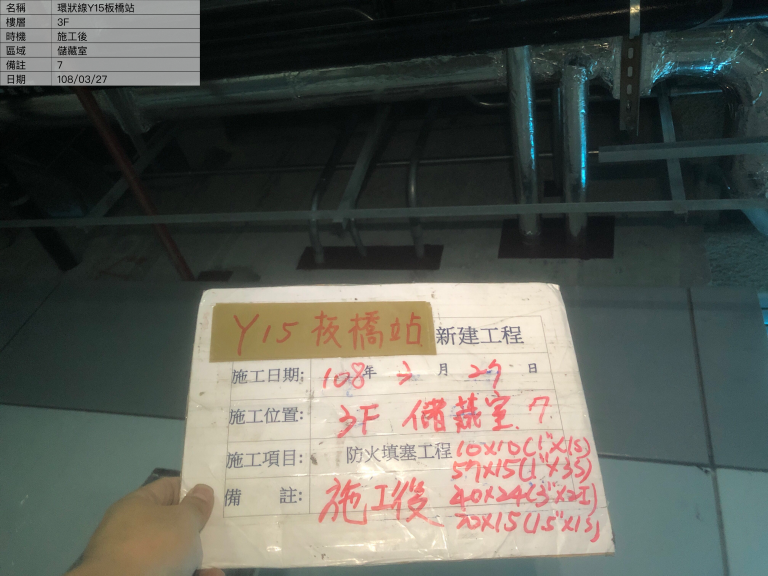 名稱 環狀線Y15板橋站
樓層 3F
時機 施工後
區域 儲藏室
備註 7
日期 108/03/27
Y15 板橋站 新建工程
施工日期: 108 年 3 月 27 日
施工位置: 3F 儲藏室 7.
施工項目: 防火填塞工程 10X10(1"X1S)
57X15(1"X3S)
備 註: 施工後 40X24(3"X2I)
20X15(1.5"X1S)